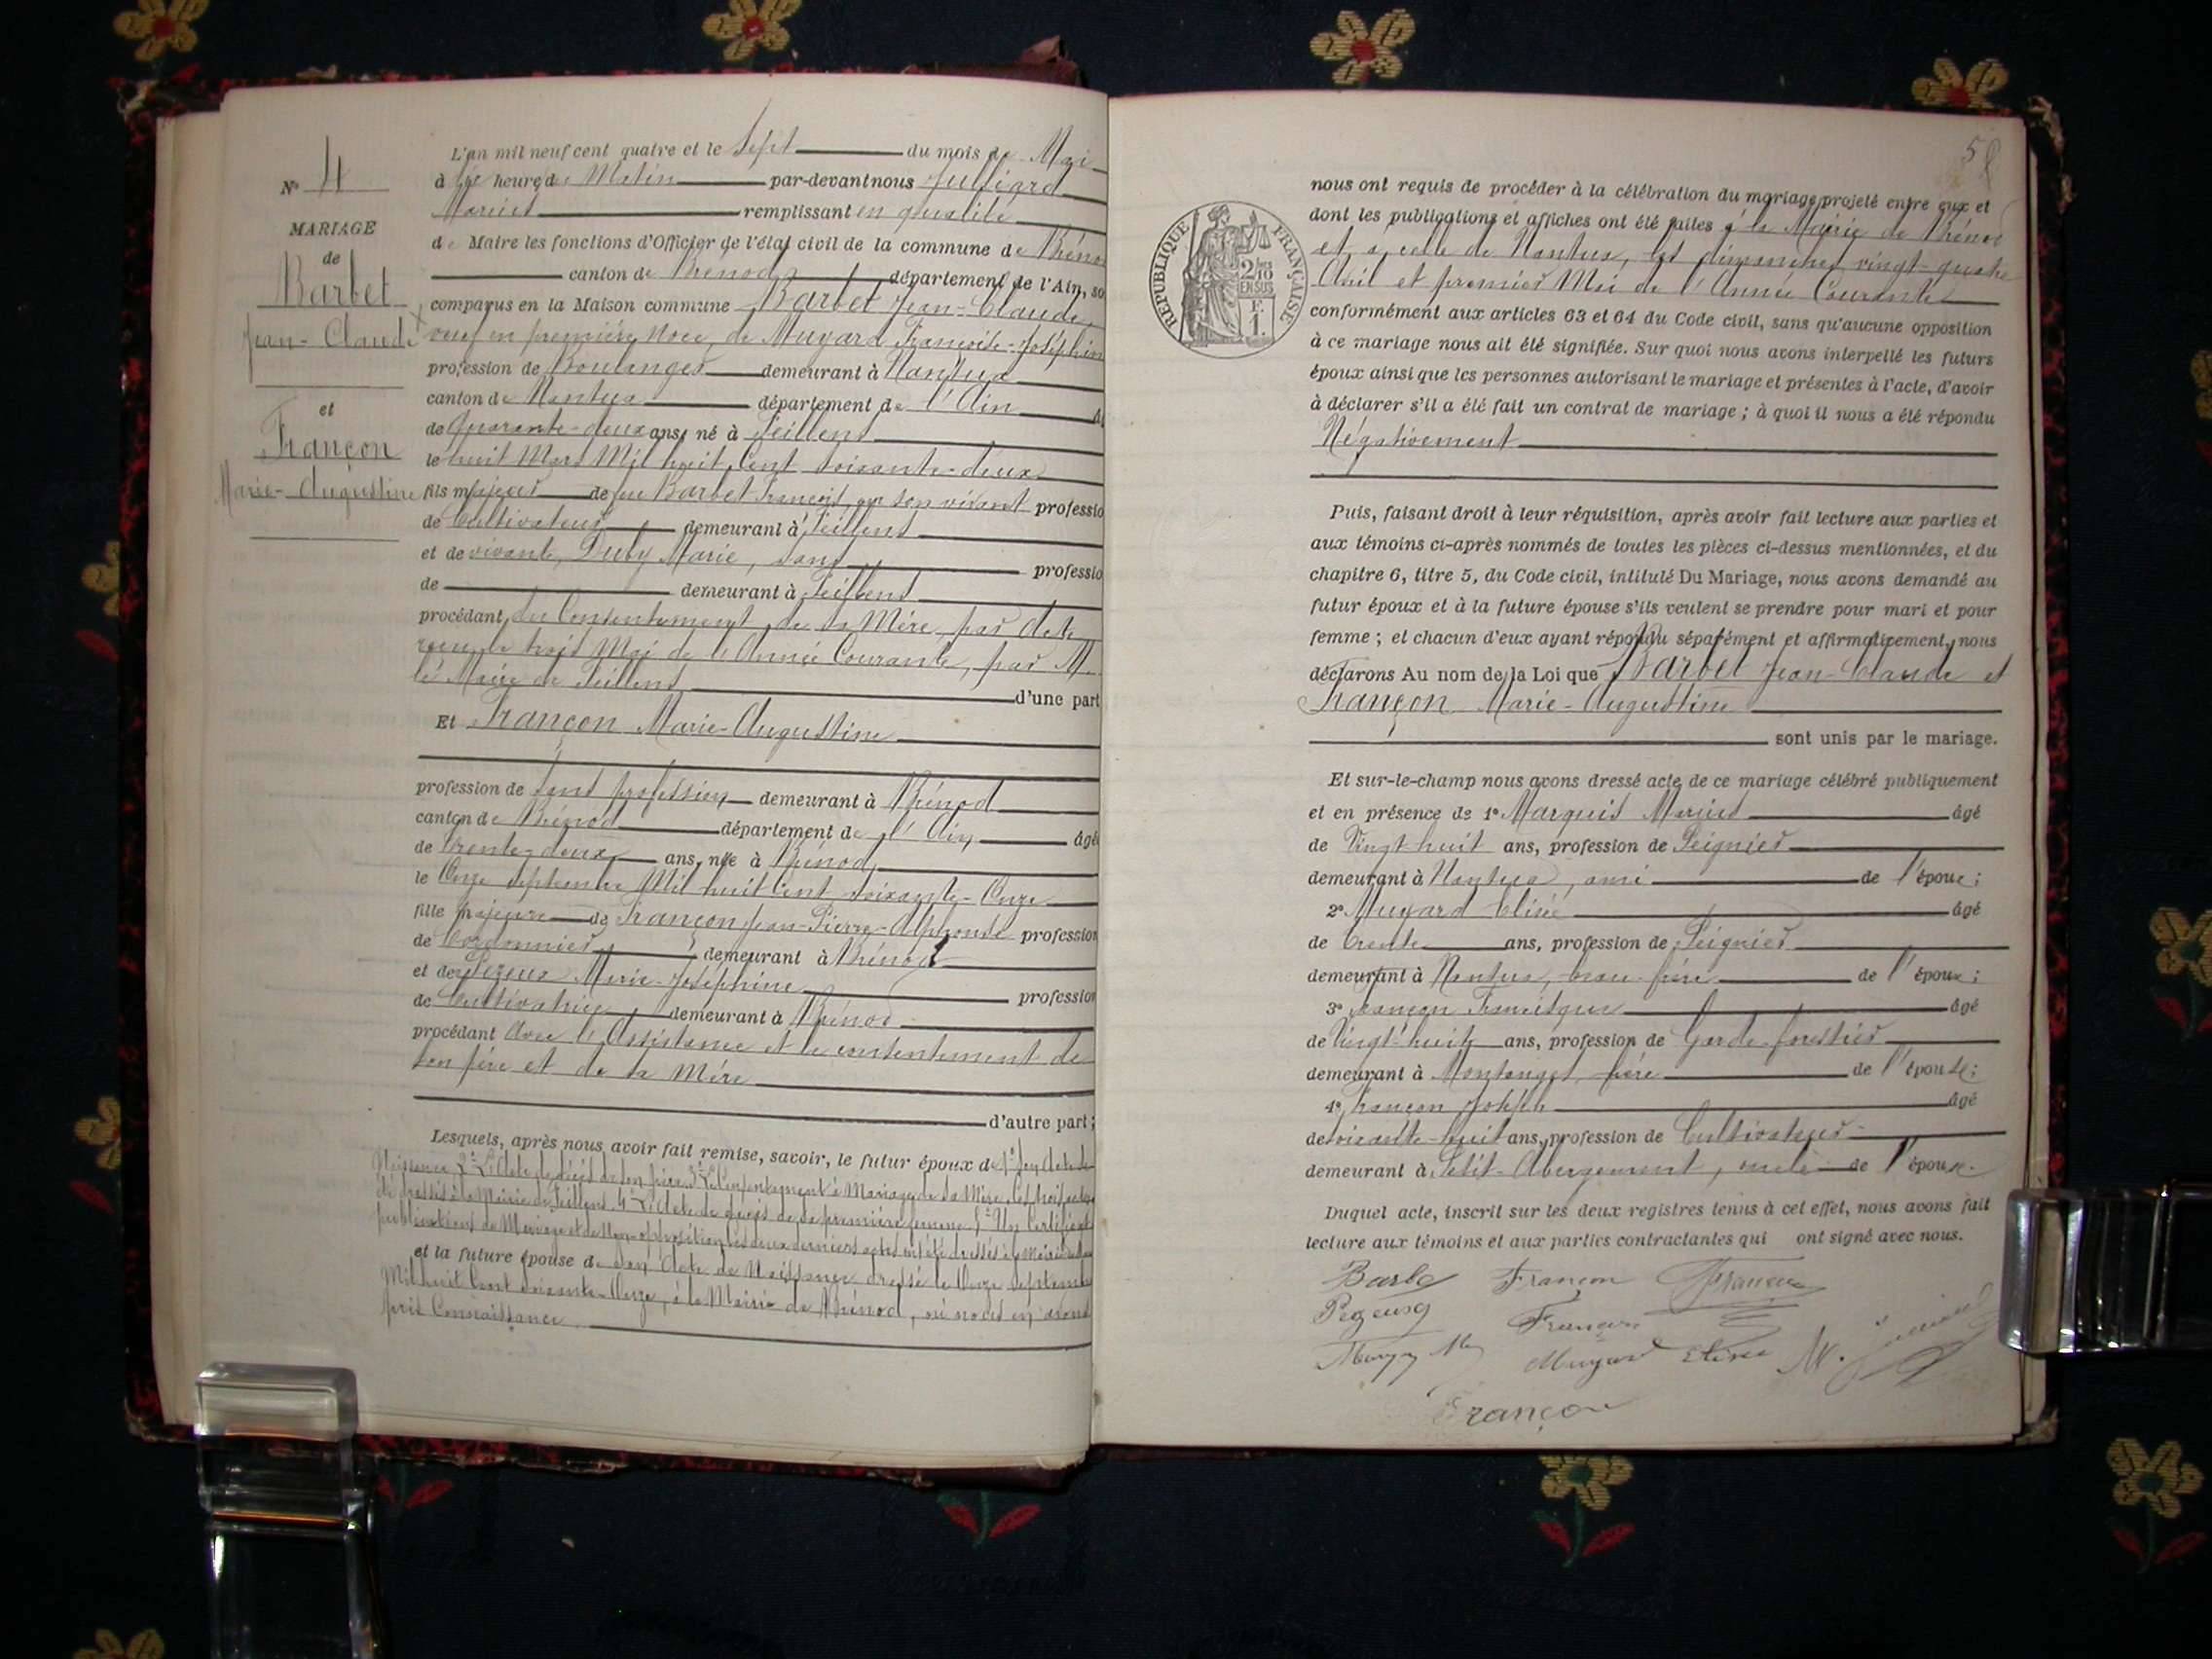 N° 4
MARIAGE
de
Barbet
Jean-Claude
et
Françon
Marie-Augustine
L'an mil neuf cent quatre et le Sept du mois de Mai
à heure du Matin par-devant nous Juilliard
Marius remplissant en qualité
de Maire les fonctions d'Officier de l'état civil de la commune de Bréno
canton de Brénod département de l'Ain, so
comparus en la Maison commune Barbet Jean-Claude,
veuf en première Noce de Mugard Françoise-Joséphin
profession de Boulanger demeurant à Nantua
canton de Nantua département de l'Ain
de Quarante-deux ans, né à Feillens
le huit Mars Mil huit Cent soixante-deux
fils majeur de feu Barbet François, en son vivant professio
de Cultivateur demeurant à Feillens
et de vivante, Duby Marie, sans professio
de demeurant à Feillens
procédant du Consentement de sa Mère par Acte
reçu le trois Mai de l'Année Courante, par M.
le Maire de Feillens d'une part
Et Françon Marie-Augustine
profession de Sans profession demeurant à Brénod
canton de Brénod département de l'Ain âgé
de Trente-deux ans, née à Brénod
le Onze Septembre Mil huit Cent soixante-Onze
fille majeure de Françon Jean-Pierre-Alphonse profession
de Cordonnier demeurant à Brénod
et de Pezeux Marie-Joséphine profession
de Cultivatrice demeurant à Brénod
procédant Avec l'Assistance et le consentement de
son père et de sa Mère
d'autre part;
Lesquels, après nous avoir fait remise, savoir, le futur époux de 1° Son Acte de
Naissance 2° L'Acte de décès de son père 3° Le Consentement à Mariage de sa Mère, Ces trois actes
dressés à la Mairie de Feillens 4° L'Acte de décès de sa première femme 5° Un Certificat
publications de Mariage et de Non-opposition, ces deux derniers actes ont été dressés à la Mairie
et la future épouse de son Acte de Naissance dressé le Onze Septembre
Mil huit Cent soixante-Onze, à la Mairie de Brénod, où nous en avons
pris Connaissance
58
RÉPUBLIQUE FRANÇAISE
2/10
EN SUS
F.
1.
nous ont requis de procéder à la célébration du mariage projeté entre eux et
dont les publications et affiches ont été faites à la Mairie de Brénod
et à celle de Nantua, les dimanches vingt-quatre
Avril et premier Mai de l'Année Courante
conformément aux articles 63 et 64 du Code civil, sans qu'aucune opposition
à ce mariage nous ait été signifiée. Sur quoi nous avons interpellé les futurs
époux ainsi que les personnes autorisant le mariage et présentes à l'acte, d'avoir
à déclarer s'il a été fait un contrat de mariage ; à quoi il nous a été répondu
Négativement
Puis, faisant droit à leur réquisition, après avoir fait lecture aux parties et
aux témoins ci-après nommés de toutes les pièces ci-dessus mentionnées, et du
chapitre 6, titre 5, du Code civil, intitulé Du Mariage, nous avons demandé au
futur époux et à la future épouse s'ils veulent se prendre pour mari et pour
femme ; et chacun d'eux ayant répondu séparément et affirmativement, nous
déclarons Au nom de la Loi que Barbet Jean-Claude et
Françon Marie-Augustine
sont unis par le mariage.
Et sur-le-champ nous avons dressé acte de ce mariage célébré publiquement
et en présence de 1° Marquis Marius âgé
de Vingt-huit ans, profession de Peignier
demeurant à Nantua, ami de l'époux;
2° Mugard Elisée âgé
de Trente ans, profession de Peignier
demeurant à Nantua, beau-frère de l'époux;
3° Françon Francisque âgé
de Vingt-huit ans, profession de Garde-forestier
demeurant à Montanges, frère de l'épouse;
4° Françon Joseph âgé
de soixante-huit ans, profession de Cultivateur
demeurant à Petit-Abergement, oncle de l'épouse.
Duquel acte, inscrit sur les deux registres tenus à cet effet, nous avons fait
lecture aux témoins et aux parties contractantes qui ont signé avec nous.
Barbe Françon Françon
Pezeux Françon
Mugard Elisée
Françon